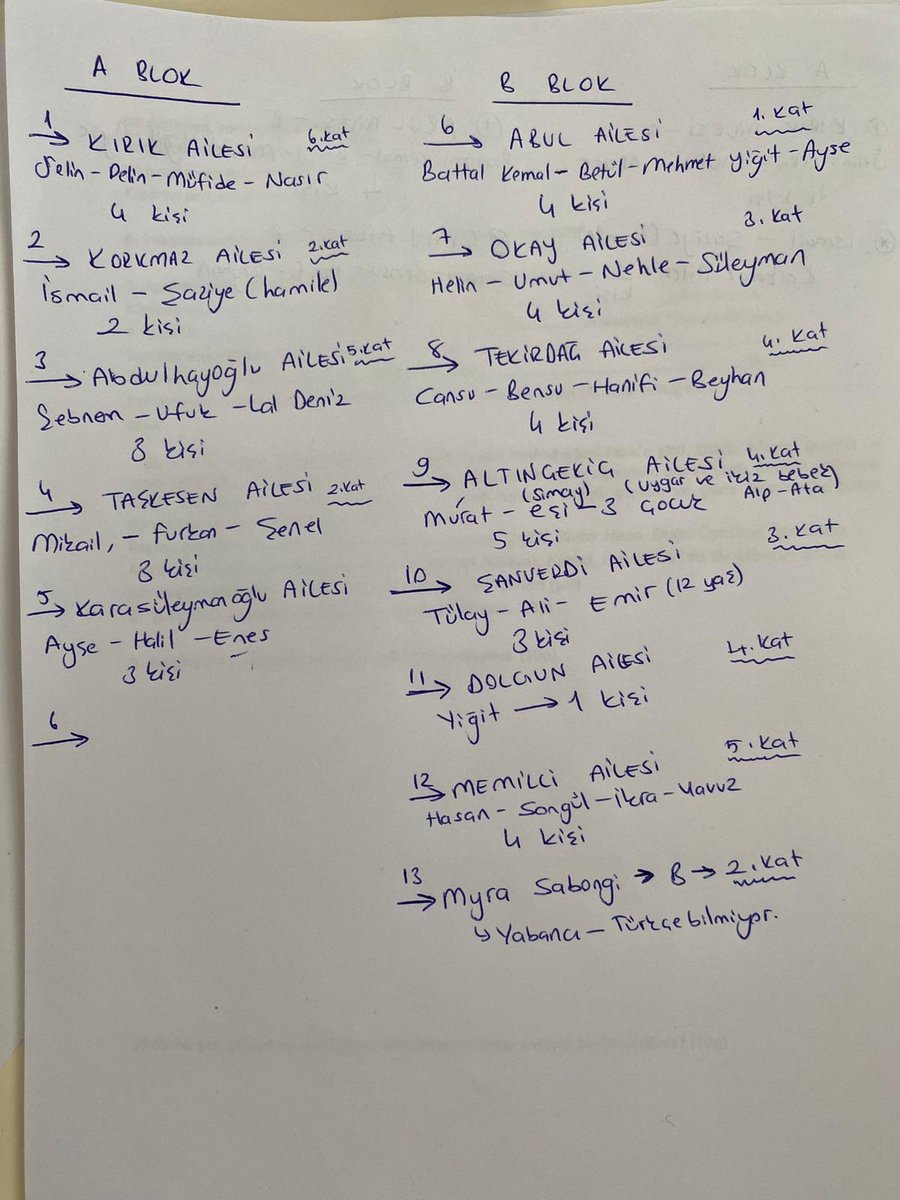 A BLOK
1 → KIRIK AİLESİ 6.kat
Selin - Pelin - Müfide - Nasır
4 kişi
2 → KORKMAZ AİLESİ 2.kat
İsmail - Şaziye (hamile)
2 kişi
3 → Abdulhayoğlu AİLESİ 5.kat
Şebnem - Ufuk - Lal Deniz
3 kişi
4 → TAŞKESEN AİLESİ 2.kat
Mikail, - Furkan - Şenel
3 kişi
5 → Karasüleymanoğlu AİLESİ
Ayşe - Halil - Enes
3 kişi
6 →
B BLOK
6 → ABUL AİLESİ 1. kat
Battal Kemal - Betül - Mehmet Yiğit - Ayşe
4 kişi
7 → OKAY AİLESİ 3. kat
Helin - Umut - Nehle - Süleyman
4 kişi
8 → TEKİRDAĞ AİLESİ 4. kat
Cansu - Bensu - Hanifi - Beyhan
4 kişi
9 → ALTINGEKİG AİLESİ 4.kat
(Simay) (Uygar ve ikiz bebek)
Murat - eşi - 3 çocuk Alp - Ata
5 kişi
10 → ŞANVERDİ AİLESİ 3. kat
Tülay - Ali - Emir (12 yaş)
3 kişi
11 → DOLGUN AİLESİ 4. kat
Yiğit → 1 kişi
12 → MEMİLLİ AİLESİ 5. kat
Hasan - Songül - İkra - Yavuz
4 kişi
13 → Myra Sabongi → B → 2. kat
↳ Yabancı - Türkçe bilmiyor.